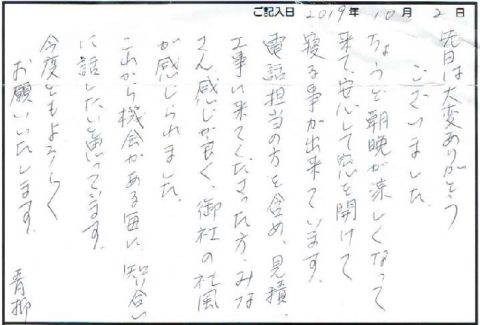 ご記入日 2019年 10月 2日
先日は大変ありがとう
ございました。
ちょうど朝晩が涼しくなって
来て、安心して窓を開けて
寝る事が出来ています。
電話担当の方を含め、見積、
工事に来てくださった方、みな
さん感じが良く、御社の社風
が感じられました。
これから機会がある毎に、知り合い
に話したいと思っています。
今後ともよろしく
お願いいたします。
青柳